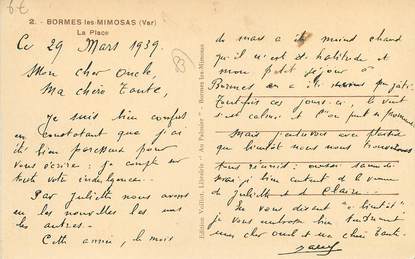 6€
2. - BORMES les-MIMOSAS (Var)
La Place
Ce 29 Mars 1939.
Mon cher Oncle,
Ma chère Tante,
Je suis bien confus
en constatant que j'ai
été bien paresseux pour
vous écrire : je compte sur
toute votre indulgence..
Par Juliette nous avons
eu les nouvelles les uns
les autres..
Cette année, le mois
53
Edition Veillot, Librairie "Au Palmier" - Bormes-les-Mimosas
de mars a été moins chaud
qu'il n'est d'habitude et
mon petit séjour à
Bormes en a été un peu gâté.
Toutefois ces jours-ci, le vent
s'est calmé et l'on peut se promener
Mais j'entrevois avec plaisir
que bientôt nous nous trouverons
tous réunis :
mais j'ai bien
de Juliette et de Claire..
En vous disant "à bientôt"
je vous embrasse bien tendrement
mon cher oncle et ma chère Tante.